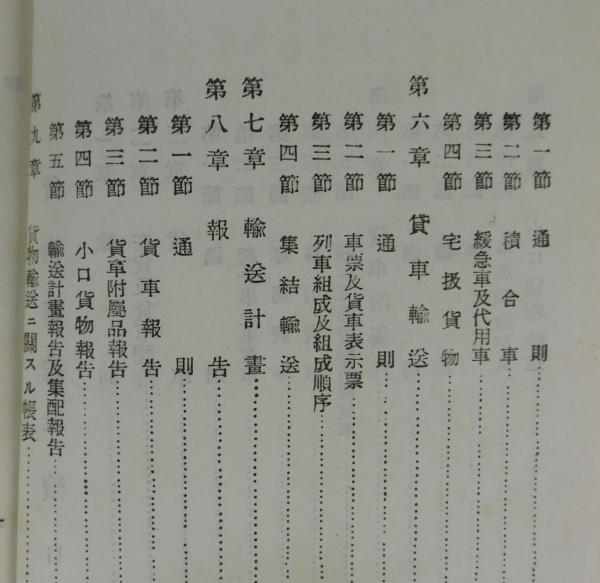 第一節 通則
第二節 積合車
第三節 緩急車及代用車
第四節 宅扱貨物
第六章 貸車輸送
第一節 通則
第二節 車票及貨車表示票
第三節 列車組成及組成順序
第四節 集結輸送
第七章 輸送計畫
第八章 報告
第一節 通則
第二節 貨車報告
第三節 貨車附屬品報告
第四節 小口貨物報告
第五節 輸送計畫報告及集配報告
第九章 貨物輸送ニ關スル帳表